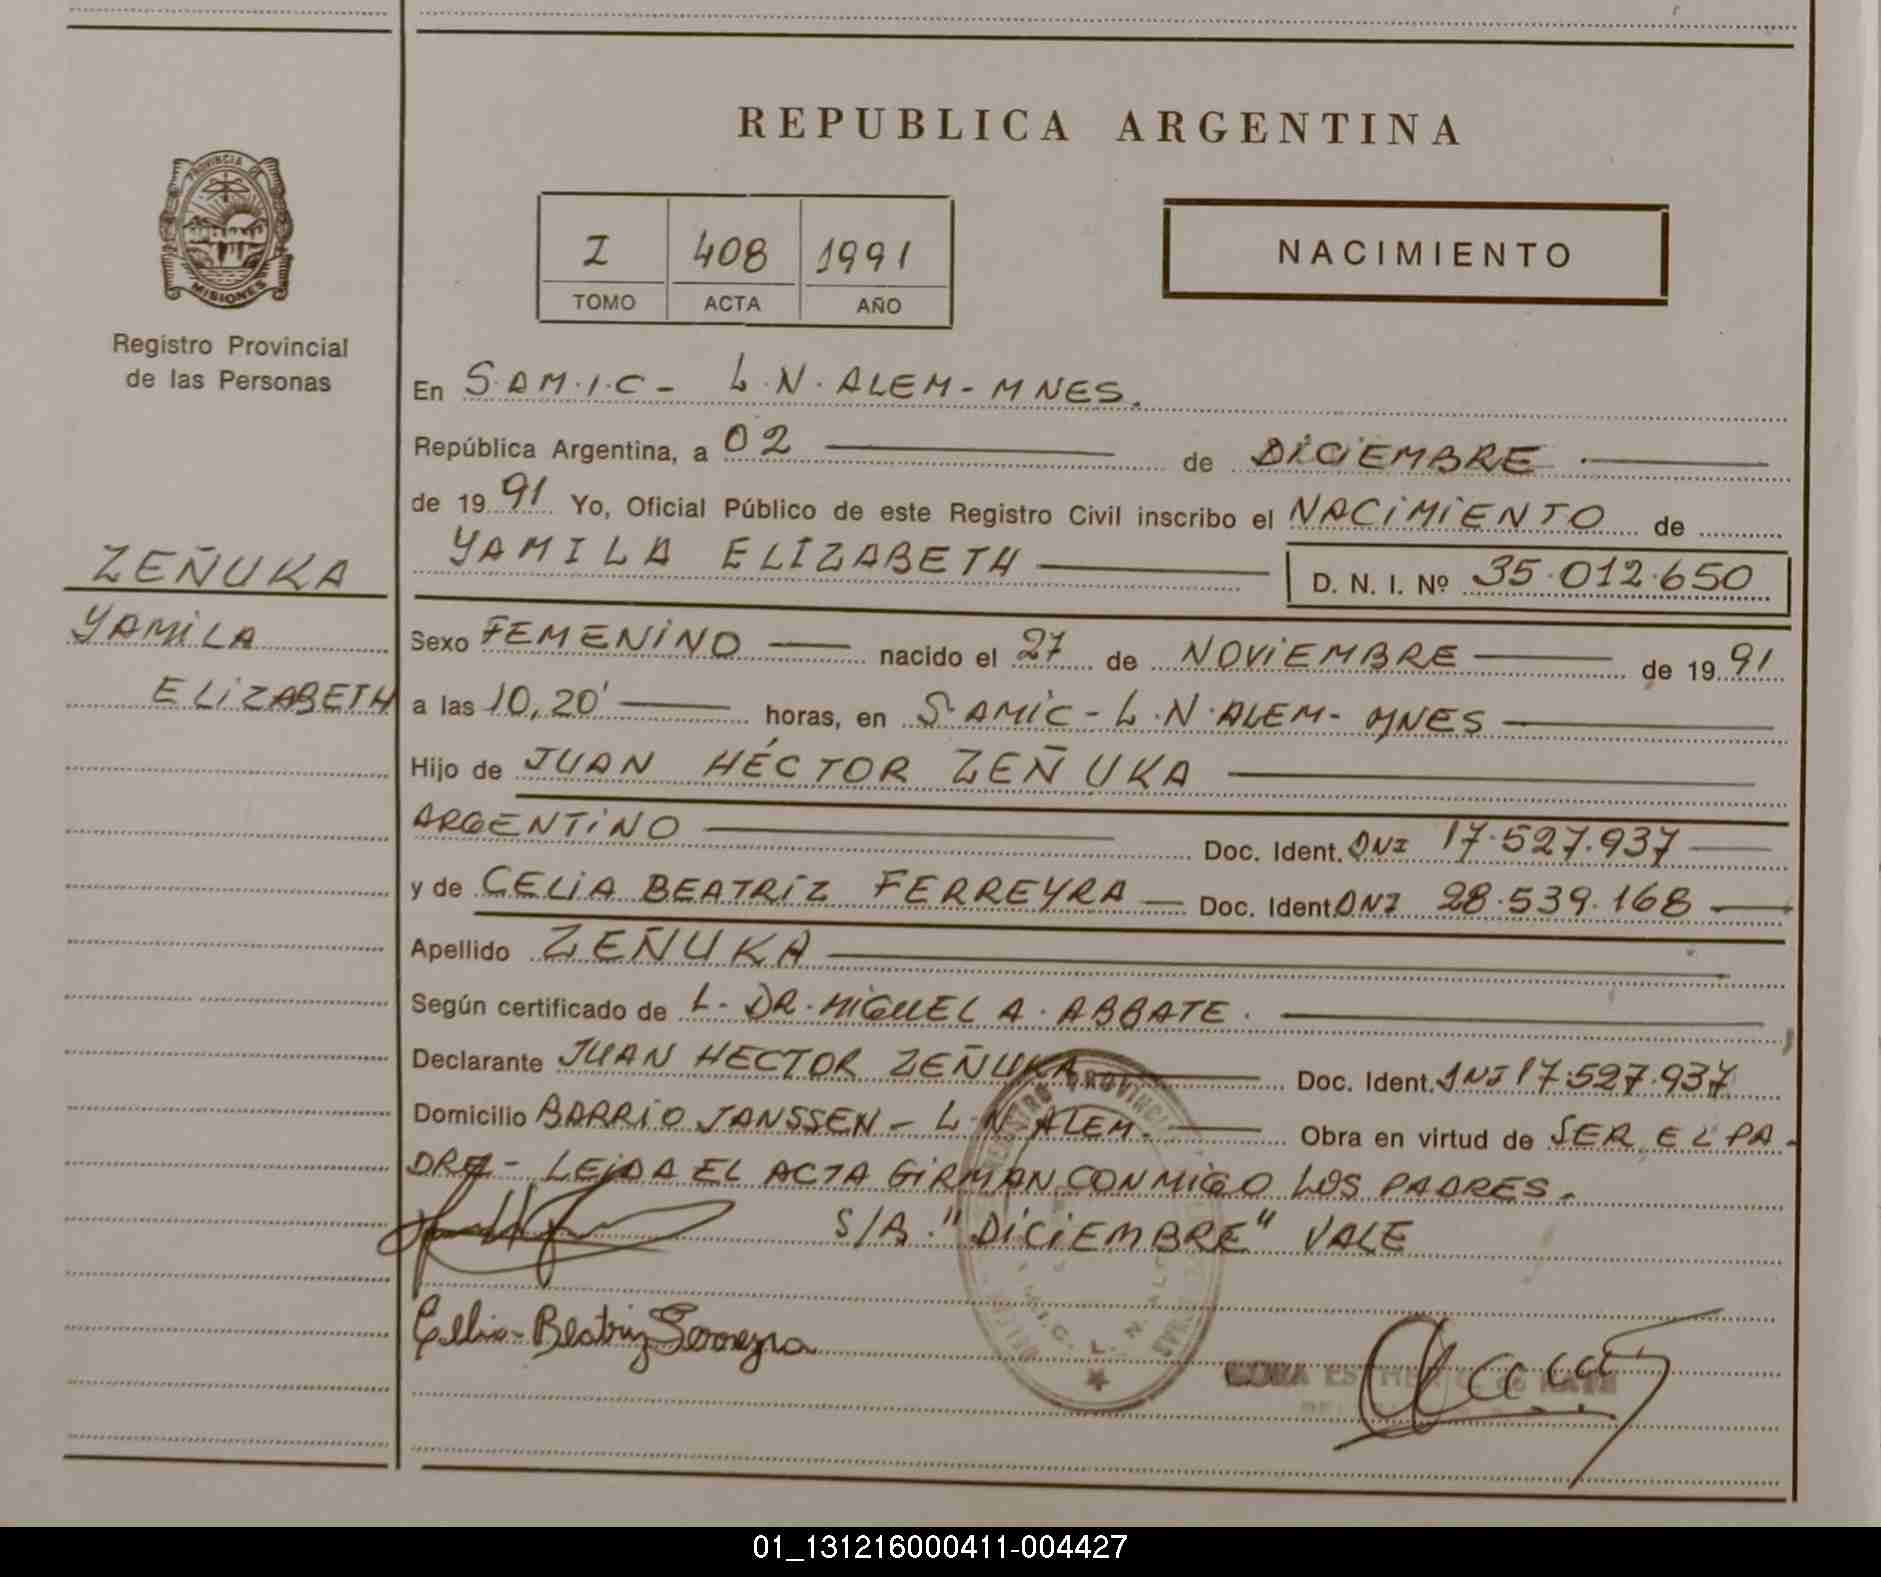 REPUBLICA ARGENTINA
PROVINCIA DE
MISIONES
I 408 1991
TOMO ACTA AÑO
NACIMIENTO
Registro Provincial
de las Personas
En S.AM.I.C - L.N.ALEM - MNES.
República Argentina, a 02 de DICIEMBRE
de 1991 Yo, Oficial Público de este Registro Civil inscribo el NACIMIENTO de
YAMILA ELIZABETH D. N. I. Nº 35.012.650
ZEÑUKA
YAMILA
ELIZABETH
Sexo FEMENINO nacido el 27 de NOVIEMBRE de 1991
a las 10,20' horas, en S.AMIC - L.N.ALEM - MNES
Hijo de JUAN HÉCTOR ZEÑUKA
ARGENTINO Doc. Ident. DNI 17.527.937
y de CELIA BEATRIZ FERREYRA Doc. Ident. DNI 28.539.168
Apellido ZEÑUKA
Según certificado de L. DR. MIGUEL A. ABBATE.
Declarante JUAN HECTOR ZEÑUKA Doc. Ident. DNI 17.527.937
Domicilio BARRIO JANSSEN - L.N.ALEM. Obra en virtud de SER EL PA-
DRE - LEIDA EL ACTA FIRMAN CONMIGO LOS PADRES.
S/B. "DICIEMBRE" VALE
Celia Beatriz Ferreyra
01_131216000411-004427